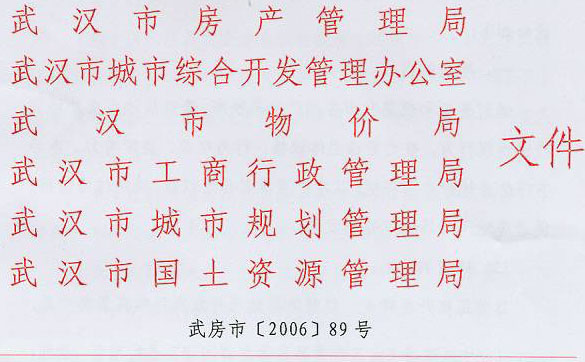 武汉市房产管理局
武汉市城市综合开发管理办公室
武汉市物价局
武汉市工商行政管理局
武汉市城市规划管理局
武汉市国土资源管理局
文件
武房市〔2006〕89号